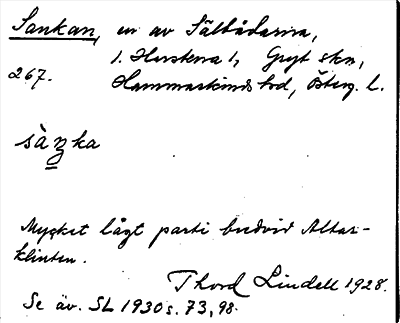 Sankan, en av Sälbådarna,
1. Hurstena 1, Gryt skn,
267. Hammarkinds hd, Österg. l.
sàŋka
Mycket lågt parti bredvid Altar-
klinten.
Thord Lindell 1928.
Se äv. SL 1930 s. 73, 98.